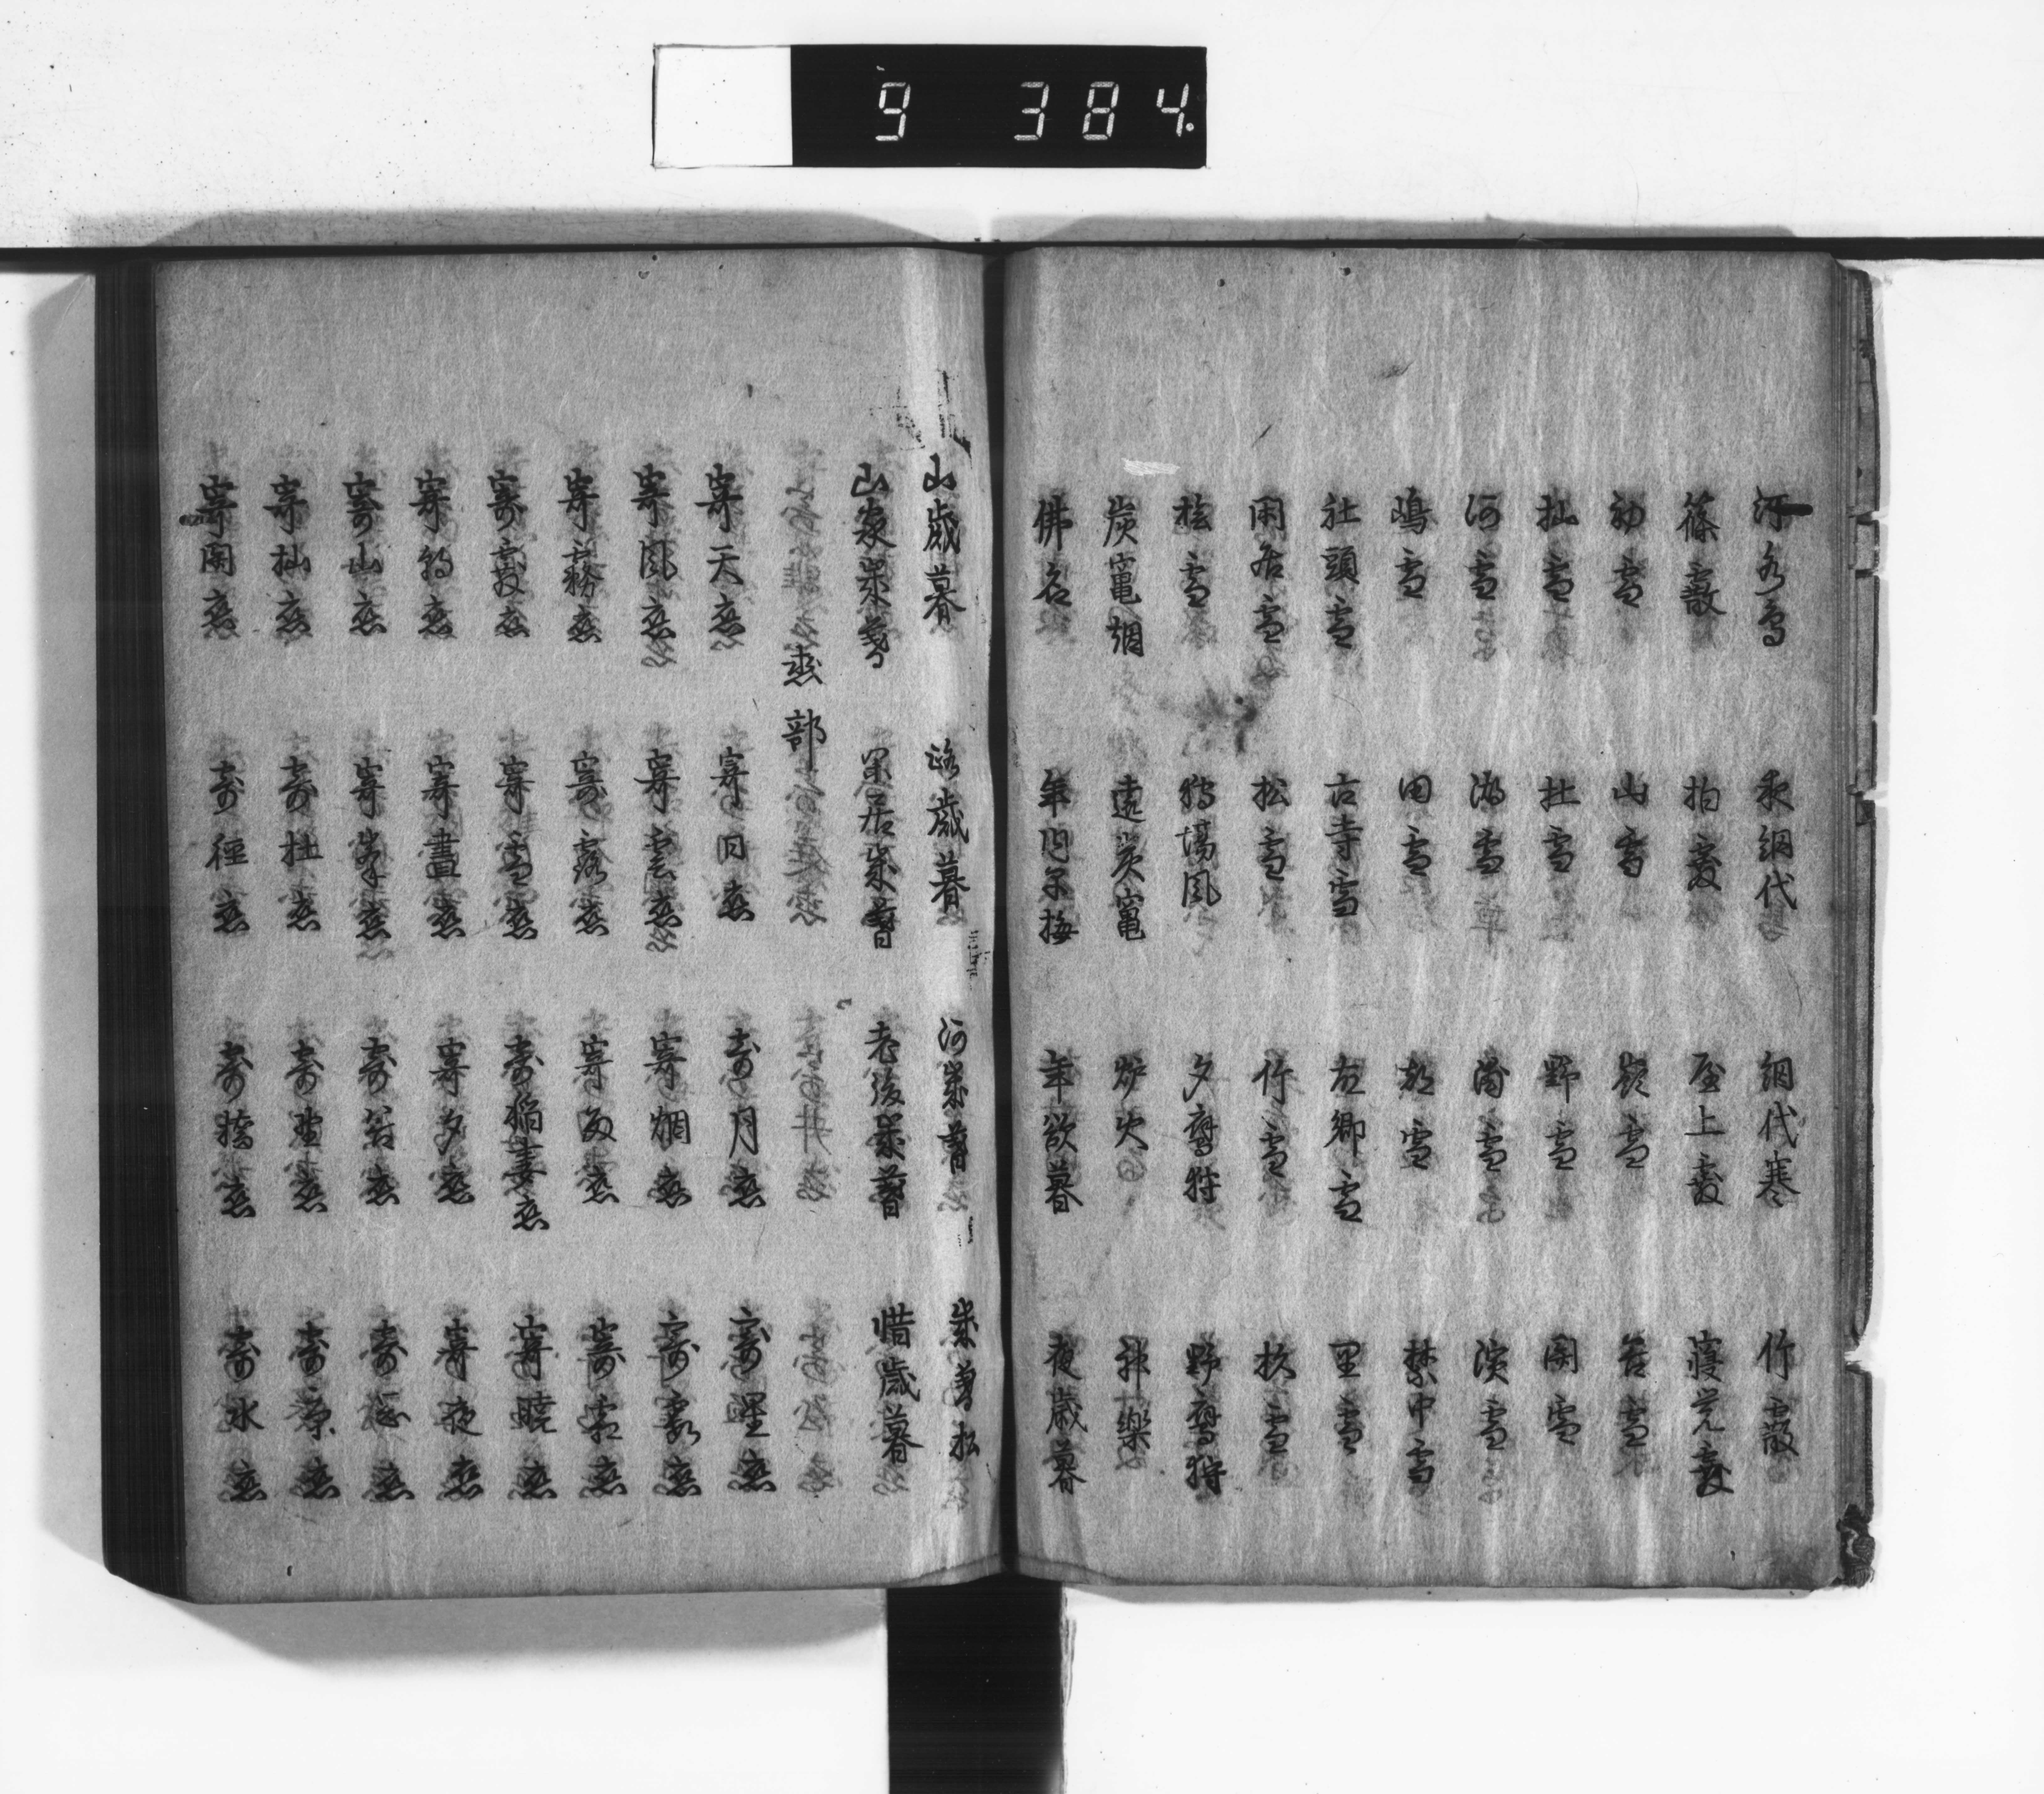 9 384.
河水鳥 夜網代 網代寒 竹霰
篠霰 柏霰 屋上霰 寝覚霰
初雪 山雪 嶺雪 谷雪
杣雪 杜雪 野雪 関雪
河雪 湖雪 浦雪 浜雪
嶋雪 田雪 都雪 禁中雪
社頭雪 古寺雪 古郷雪 里雪
閑居雪 松雪 竹雪 杉雪
桧雪 狩場風 夕鷹狩 野鷹狩
炭竃烟 遠炭竃 炉火 神樂
佛名 年内早梅 年欲暮 夜歳暮
山歳暮 路歳暮 河歳暮 歳暮松
山家歳暮 閑居歳暮 老後歳暮 惜歳暮
恋部
寄天恋 寄日恋 寄月恋 寄星恋
寄風恋 寄雲恋 寄烟恋 寄霞恋
寄霧恋 寄露恋 寄雨恋 寄霜恋
寄霰恋 寄雪恋 寄稲妻恋 寄暁恋
寄朝恋 寄晝恋 寄夕恋 寄夜恋
寄山恋 寄岑恋 寄谷恋
寄杣恋 寄杜恋 寄野恋 寄原恋
寄関恋 寄徑恋 寄橋恋 寄水恋